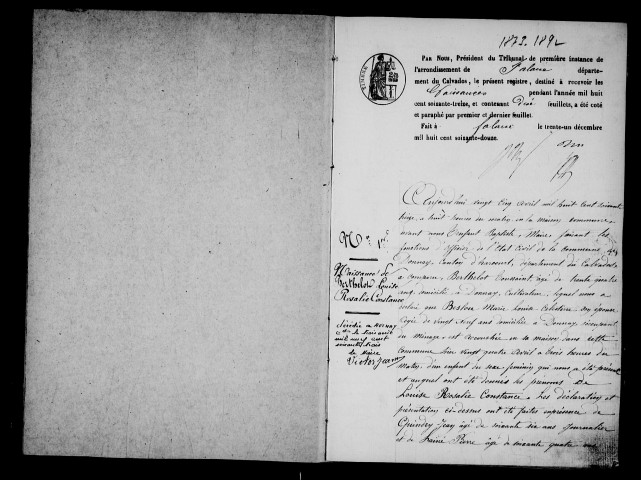 1873-1892
PAR NOUS, Président du Tribunal de première instance de
l'arrondissement de Falaise départe-
ment du Calvados, le présent registre, destiné à recevoir les
Naissances pendant l'année mil huit
cent soixante-treize, et contenant dix feuillets, a été coté
et paraphé par premier et dernier feuillet.
Fait à Falaise le trente-un décembre
mil huit cent soixante-douze.
Aujourd'hui vingt cinq avril mil huit cent soixante
treize, à huit heures du matin, en la maison commune,
devant nous Enfant Baptiste, Maire, faisant les
fonctions d'officier de l'Etat Civil de la commune de
Donnay, Canton d'harcourt, département du Calvados,
a comparu, Berthelot Toussaint, âgé de trente quatre
ans, domicilié à Donnay, Cultivateur, lequel nous a
déclaré que Marie Louise Celestine, son épouse
âgée de vingt neuf ans domiciliée à Donnay
ménage, est accouchée en sa maison dans cette
commune hier vingt quatre avril à trois heures du
matin, d'un enfant du sexe féminin qui nous a été présenté
et auquel ont été donnés les prénoms de
Louise Rosalie Constance. Les déclaration et
présentation ci-dessus ont été faites en présence de
Jean âgé de soixante six ans Journalier
et de Pierre âgé de soixante quatre ans
N° 1er
Naissance de
Berthelot Louise
Rosalie Constance
Décédée à
le trois août
mil neuf cent
soixante trois
le Maire
Victor Jean